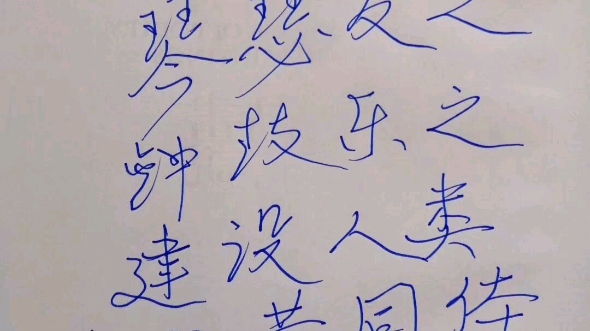 琴瑟友之
钟鼓乐之
建设人类
共同体